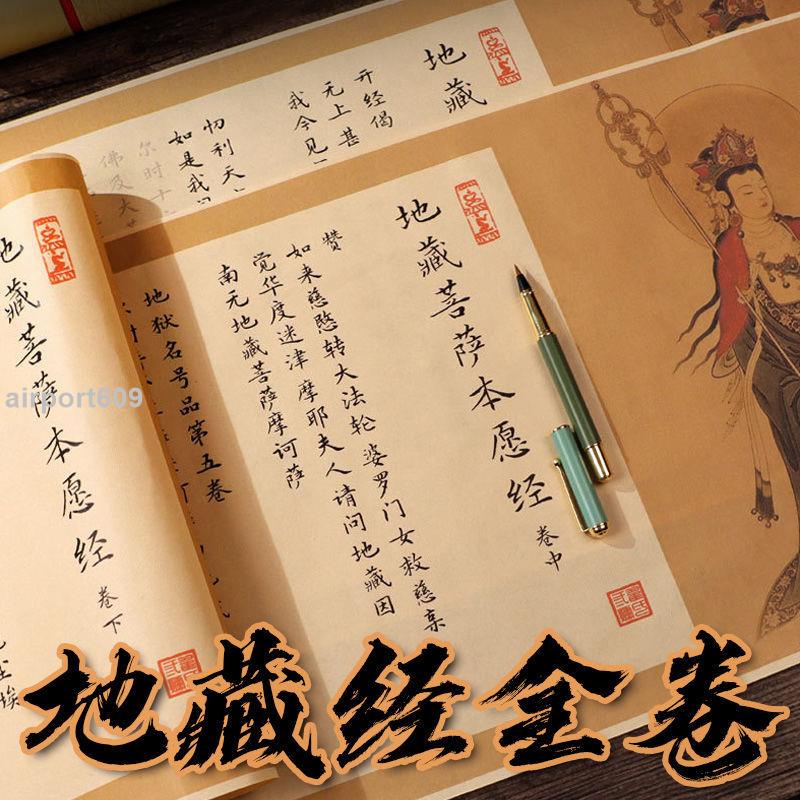 地藏
开经偈
无上甚
我今见
忉利天
如是我
尔时十
佛及大
地藏菩萨本愿经 卷中
赞
如来慈愍转大法轮 婆罗门女救慈亲
觉华度迷津 摩耶夫人请问地藏因
南无地藏菩萨摩诃萨
地狱名号品第五卷
地藏菩萨本愿经 卷下
airport609
地藏经全卷